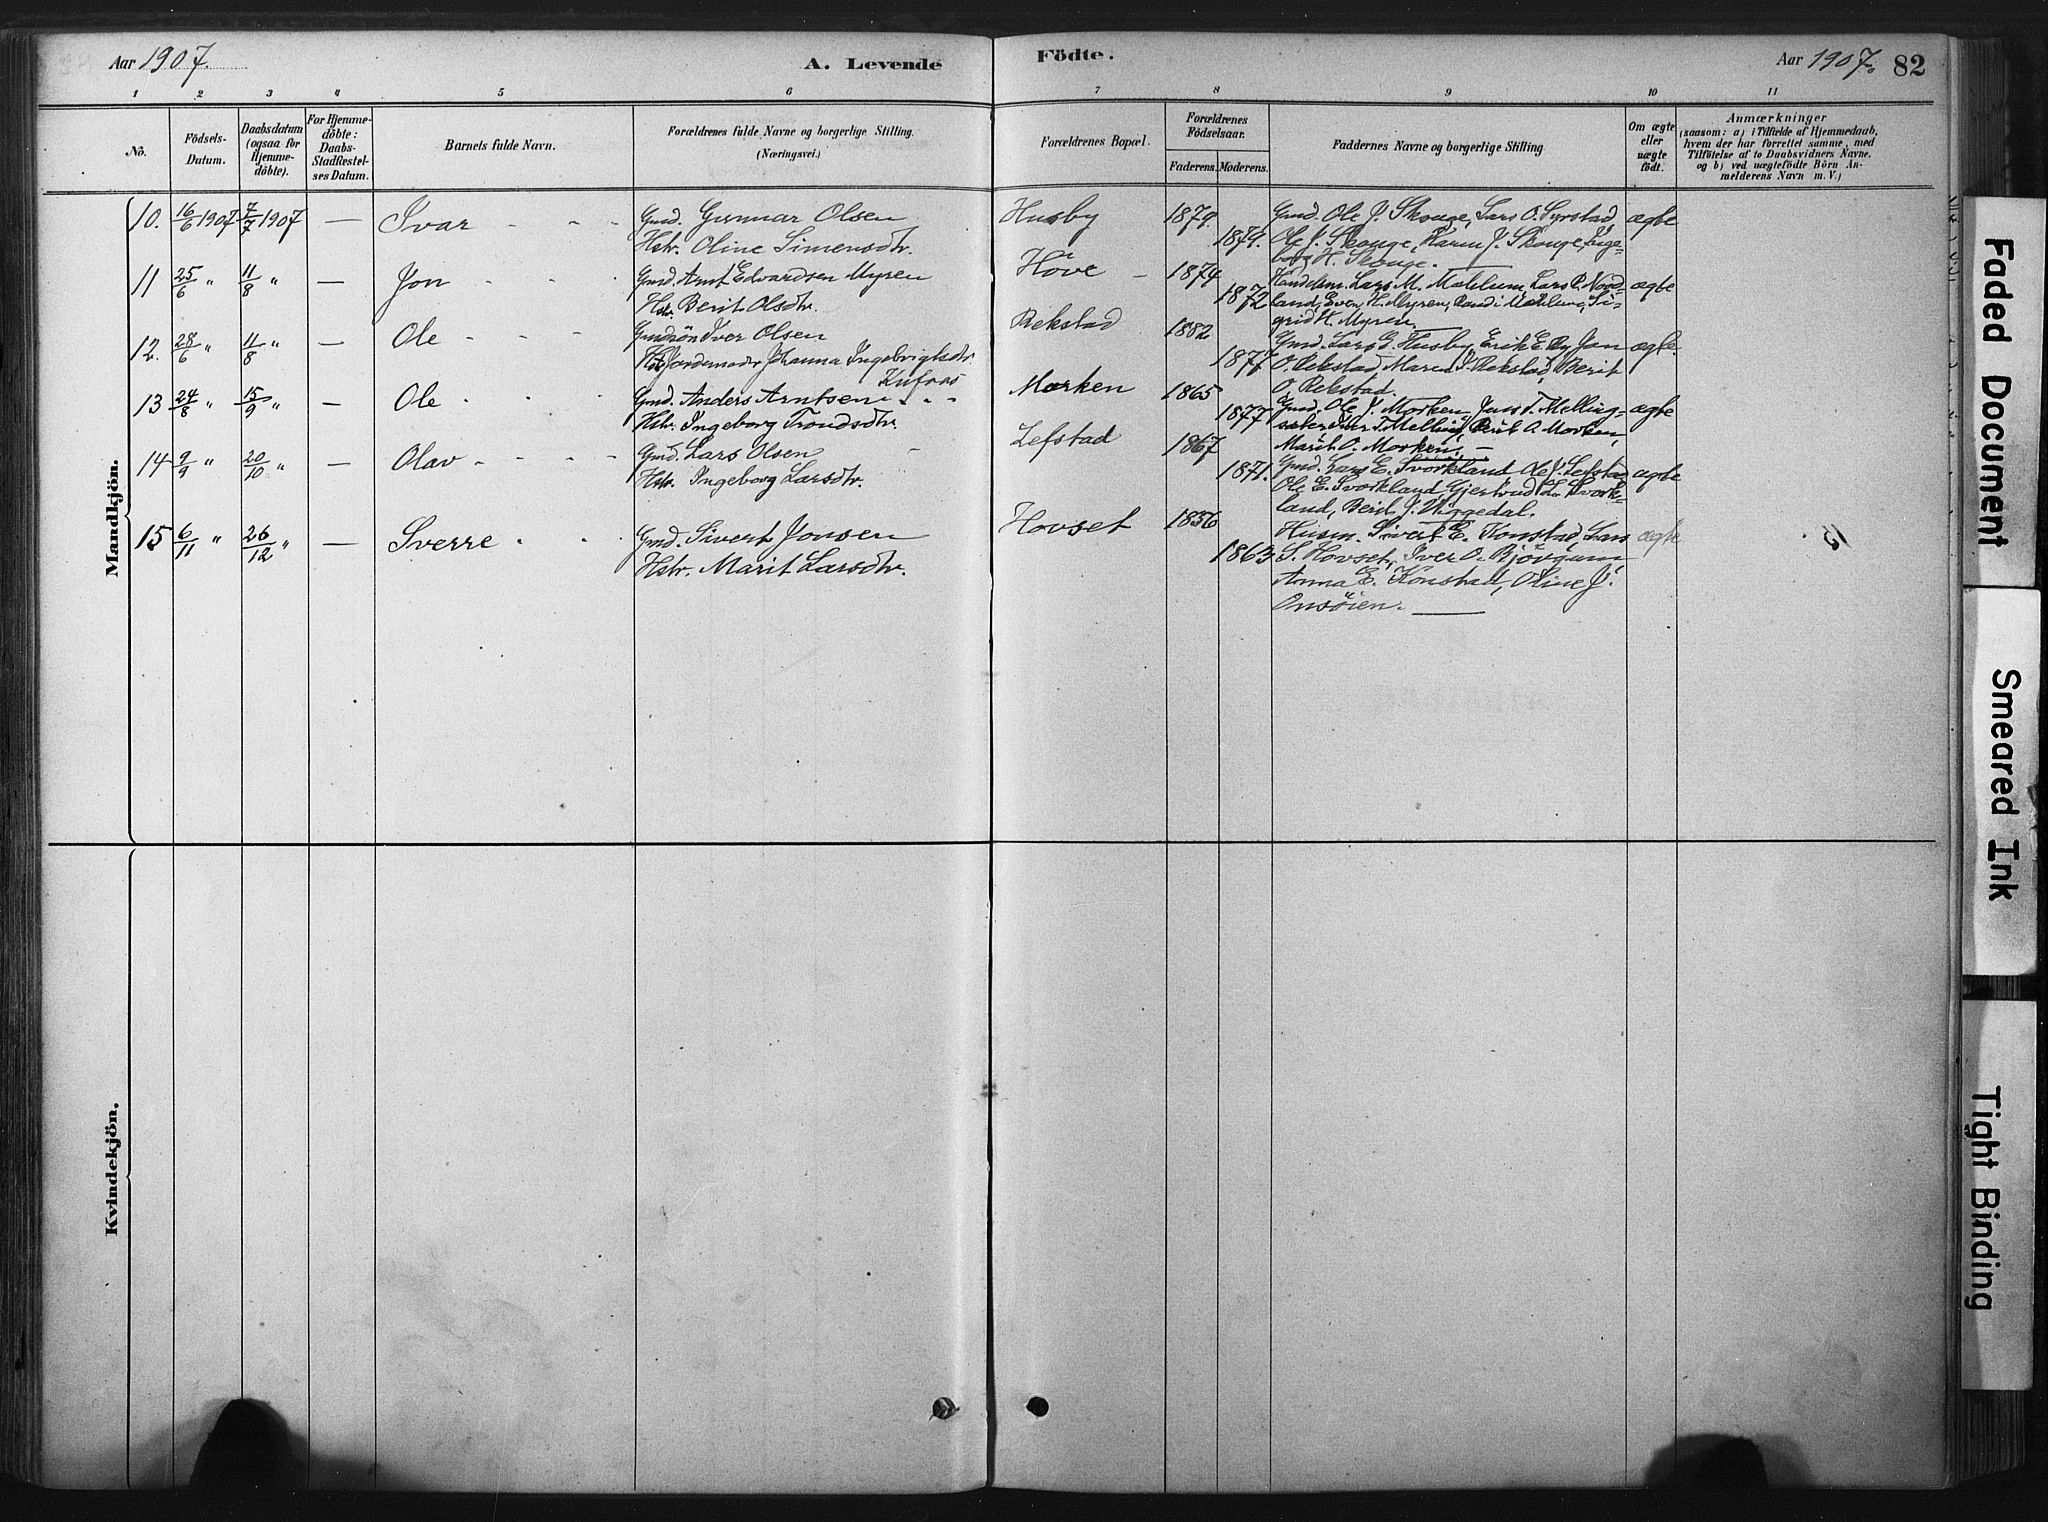 Aar 1907.
A. Levende
Födte.
Aar 1907. 82
1 2 3 4 5 6 7 8 9 10 11
No.
Födsels-
Datum.
Daabsdatum
(ogsaa for
Hjemme-
döbte).
For Hjemme-
döbte:
Daabs-
Stadfæstel-
ses Datum.
Barnets fulde Navn.
Forældrenes fulde Navne og borgerlige Stilling.
(Næringsvei.)
Forældrenes Bopæl.
Forældrenes
Födselsaar.
Faderens. Moderens.
Faddernes Navne og borgerlige Stilling
Om ægte
eller
uægte
födt.
Anmærkninger
(saasom: a) i Tilfælde af Hjemmedaab,
hvem der har forrettet samme, med
Tilföielse af to Daabsvidners Navne.
og b) ved uægtefödte Börn An-
melderens Navn m. V.)
Mandkjön.
10. 16/6 1907 7/7 1907 — Ivar
Gmd. Gunnar Olsen
Hstr. Oline Simensdtr.
Husby 1879. 1879.
Gmd. Ole J. Skouge, Lars O. Syrstad
Ole J. Skouge, Karen J. Skouge, Inge-
borg H. Skouge.
ægte
11 25/6 " 11/8 " — Jon
Gmd. Arnt Edvardsen Myren
Hstr. Berit Olsdtr.
Hove 1874 1872
Handelsm. Lars M. Mæhlum, Lars P. Nord-
land, Even H. Myren, Randi Mæhlum, Si-
grid H. Myren.
ægte
12. 28/6 " 11/8 " — Ole
Gmdsön Iver Olsen
Jordemoder Johanna Ingebrigtsdtr.
Rekstad 1882 1877
Gmd. Lars G. Husby, Erik E. By, Jon
O. Rekstad, Maren J. Rekstad, Berit
O. Rekstad.
ægte.
13 24/8 " 15/9 " — Ole
Gmd. Anders Arntsen
Hstr. Ingeborg Trondsdtr.
Morken 1865 1877
Gmd. Ole J. Morken, Jens T. Melling-
sæter, Iver T. Melling, Berit A. Morken,
Marit O. Morken.
ægte
14 9/9 " 20/10 " — Olav
Gmd. Lars Olsen
Hstr. Ingeborg Larsdtr.
Lefstad 1867 1871.
Gmd. Lars E. Svorkland, Ole J. Lefstad
Ole E. Svorkland, Gjertrud L. Svork-
land, Berit J. Viggedal.
ægte
15 6/11 " 26/12 " — Sverre
Gmd. Sivert Jonsen
Hstr. Marit Larsdtr.
Hovset 1856 1863
Husm. Sivert E. Konstad, Lars
S. Hovset, Iver O. Bjövrum
Anna E. Konstad, Oline J.
Onsöien.
ægte
Kvindekjön.
Faded Document
Smeared Ink
Tight Binding